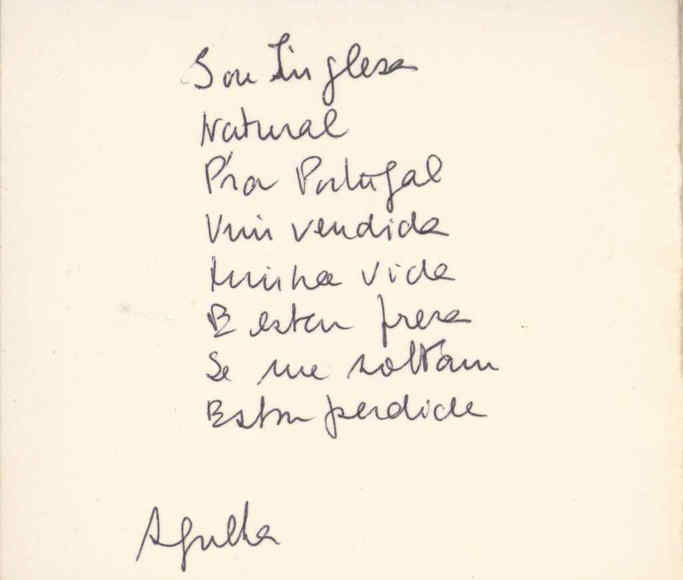 Sou Inglesa
Natural
P'ra Portugal
Vim vendida
Minha vida
É estar presa
Se me soltam
Estou perdida
Agulha